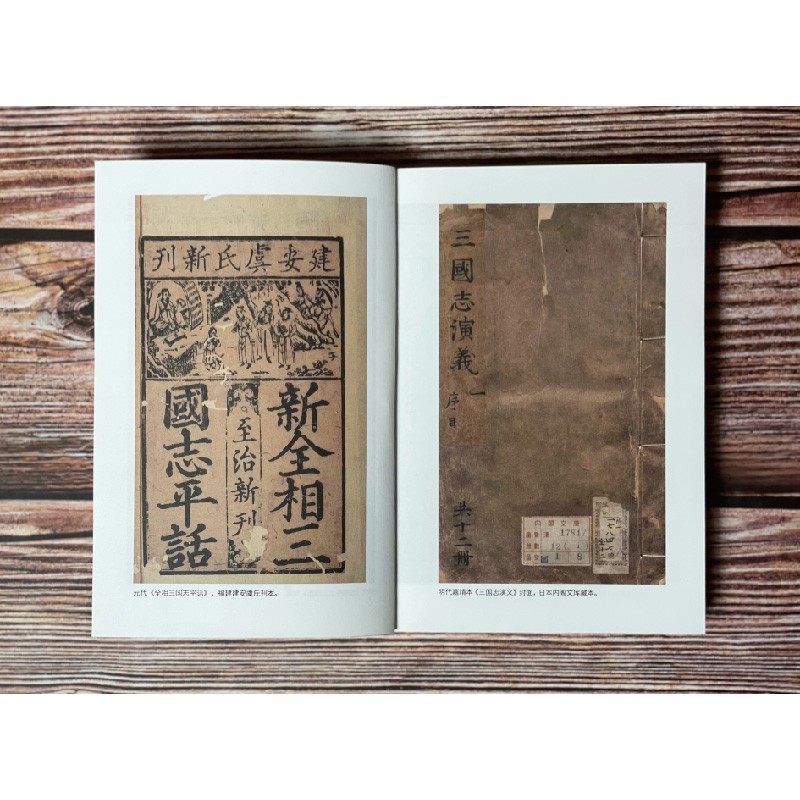 建安虞氏新刊
新全相三
至治新刊
國志平話
元代《全相三国志平话》，福建建安虞氏刊本。
三國志演義 一
序目
共十二冊
內閣文庫
明代嘉靖本《三国志演义》封面，日本内阁文库藏本。